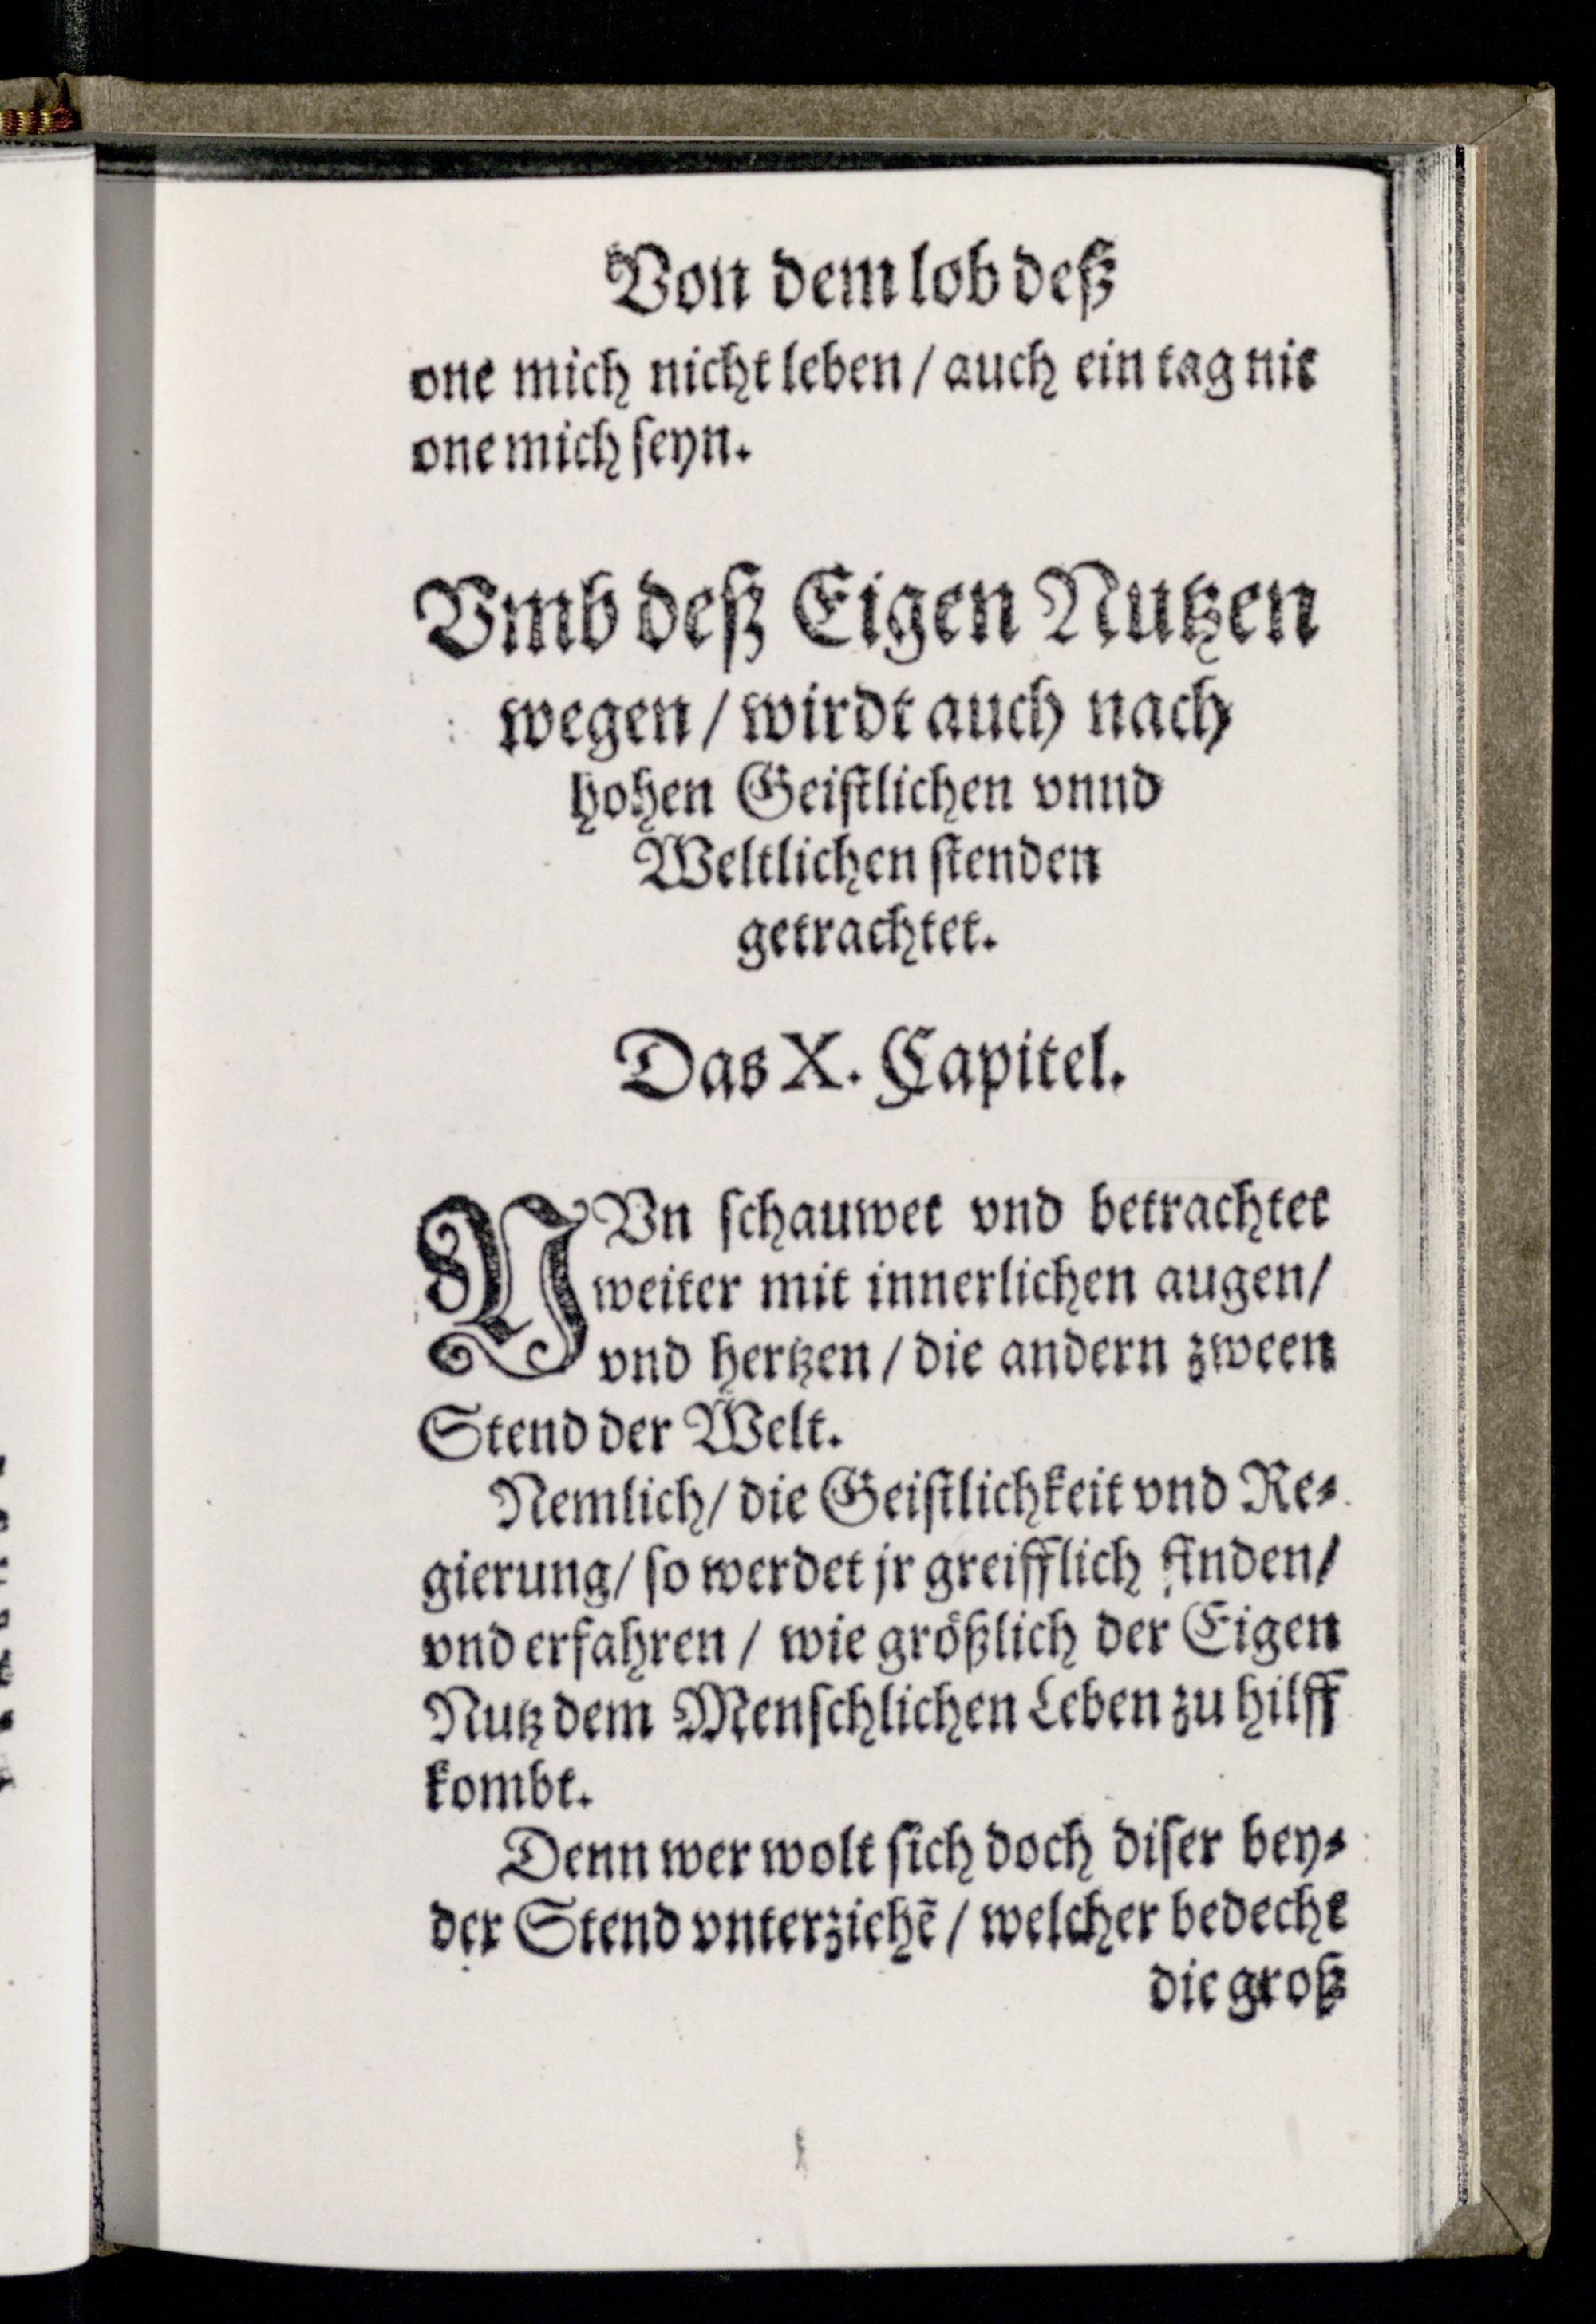 Von dem lob deß
one mich nicht leben / auch ein tag nit
one mich seyn.
Vmb deß Eigen Nutzen
wegen / wirdt auch nach
hohen Geistlichen vnnd
Weltlichen stenden
getrachtet.
Das X. Capitel.
NVn schauwet vnd betrachtet
weiter mit innerlichen augen/
vnd hertzen / die andern zween
Stend der Welt.
Nemlich/ die Geistlichkeit vnd Re⸗
gierung/ so werdet jr greifflich finden/
vnd erfahren / wie größlich der Eigen
Nutz dem Menschlichen Leben zu hilff
kombt.
Denn wer wolt sich doch diser bey⸗
der Stend vnterziehẽ / welcher bedecht
die groß